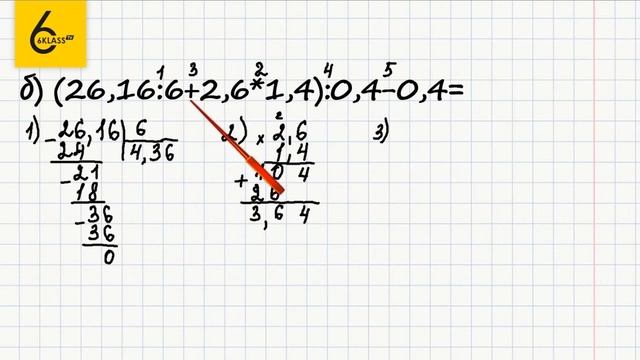 6
6KLASS TV
1 3 2 4 5
б) (26,16:6+2,6*1,4):0,4-0,4=
1) -26,16 | 6 2) × 2,6 3)
24 4,36 1,4
-21 + 1 0 4
18 2 6
-36 3,6 4
36
0